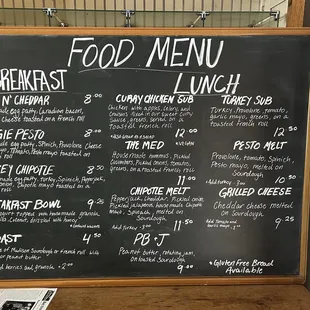 FOOD MENU
BREAKFAST
N' CHEDDAR 8.00
egg patty, Canadian bacon,
Cheese toasted on a French roll
GIE PESTO 8.00
egg patty, Spinach, Provolone Cheese
Tomato, Pesto mayo toasted on
roll
EY CHIPOTLE 8.50
egg patty, turkey, Spinach,
onion, Chipotle mayo toasted on a
roll
AKFAST BOWL 9.25
topped with homemade granola,
OAST 4.50
French roll
or peanut butter
berries and granola + 2.00
LUNCH
CURRY CHICKEN SUB
Chicken with apples, celery, and
Onions mixed in our Sweet Curry
Sauce, greens, served on a
Toasted French roll
12.00
THE MED +VEGAN
Housemade hummus, Pickled
Cucumbers, Pickled Onions, Tomato,
greens, on a toasted French Roll
11.50
CHIPOTLE MELT
PepperJack, Cheddar, Pickled onions,
Pickled jalapenos, Chipotle
Mayo, Spinach, melted on
Sourdough
11.50
Add Turkey - 3.00
PB + J
Peanut butter, rotating jam,
on toasted Sourdough
9.00
TURKEY SUB
Turkey, Provolone, tomato,
garlic mayo, greens, on a
toasted French roll
12.50
PESTO MELT
Provolone, tomato, Spinach,
Pesto mayo, melted on
Sourdough
10.50
Add Turkey 3.00
GRILLED CHEESE
Cheddar cheese melted
on Sourdough
9.25
*Gluten Free Bread
Available